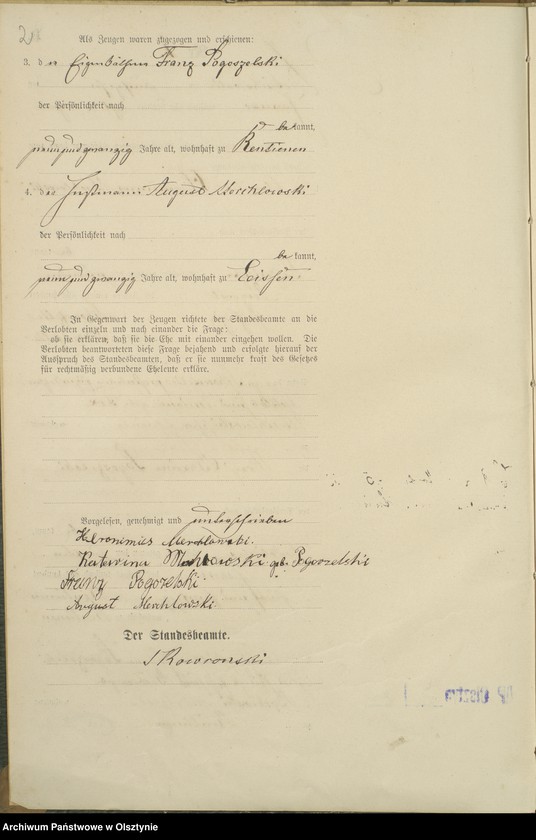 2
Als Zeugen waren zugezogen und erschienen:
3. der Eigenkäthner Franz Pogoszelski
der Persönlichkeit nach
be kannt,
neun und zwanzig Jahre alt, wohnhaft zu Rentienen
4. der Instmann August Merchlowski
der Persönlichkeit nach
be kannt,
neun und zwanzig Jahre alt, wohnhaft zu Leissen
In Gegenwart der Zeugen richtete der Standesbeamte an die
Verlobten einzeln und nach einander die Frage:
ob sie erklären, daß sie die Ehe mit einander eingehen wollen. Die
Verlobten beantworteten diese Frage bejahend und erfolgte hierauf der
Ausspruch des Standesbeamten, daß er sie nunmehr kraft des Gesetzes
für rechtmäßig verbundene Eheleute erkläre.
Vorgelesen, genehmigt und unterschrieben
Hieronimus Merchlowski.
Katarina geb. Pogorzelski
Franz Pogozelski.
August Merchlowski.
Der Standesbeamte.
Skowronski
Archiwum Państwowe w Olsztynie